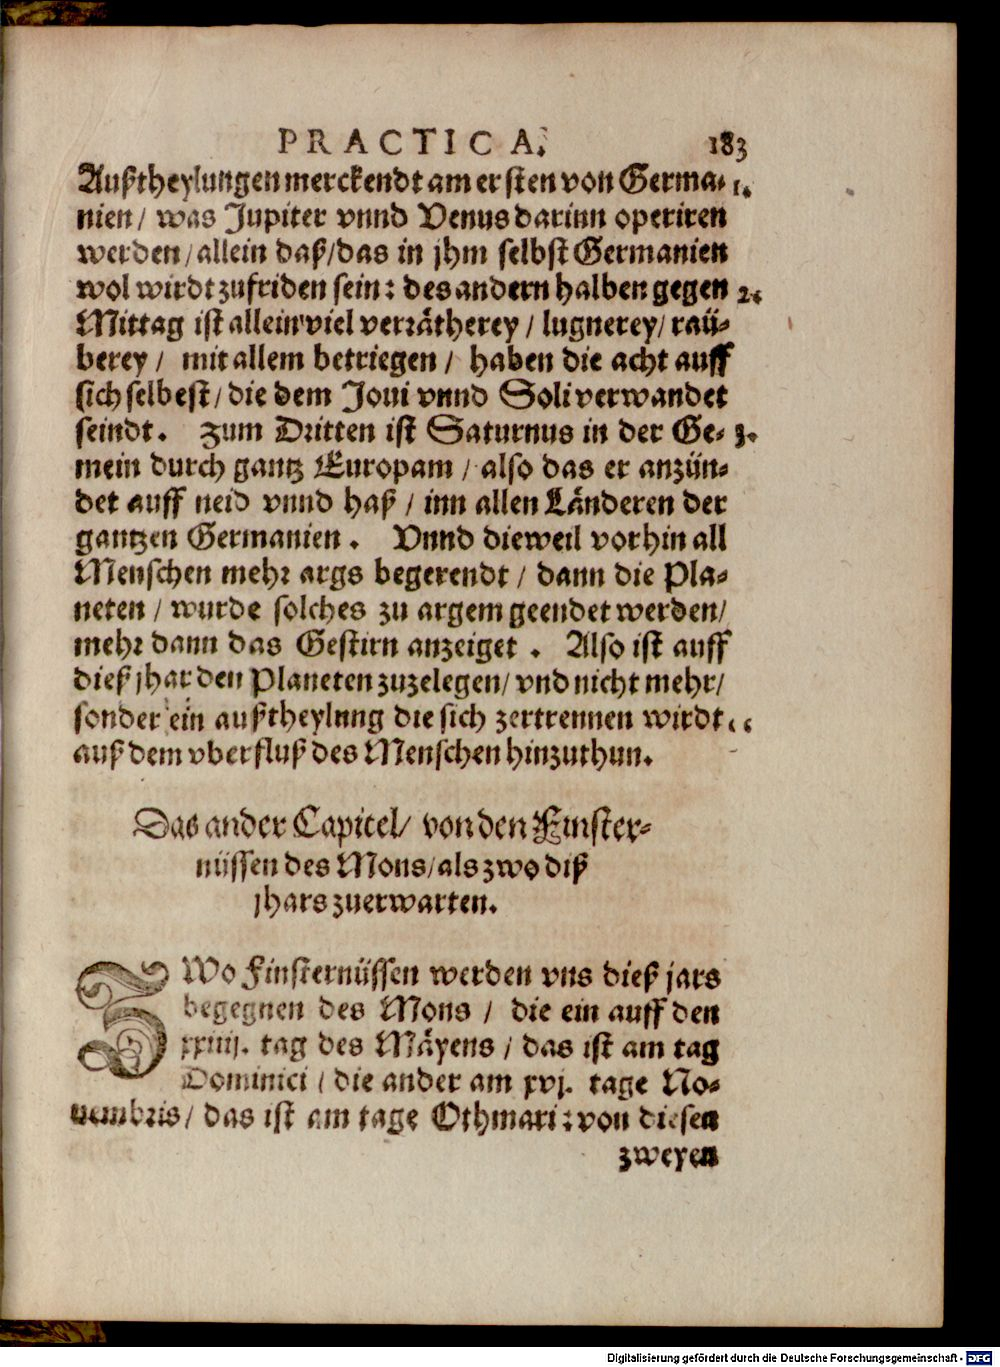 PRACTICA. 183
Außtheylungen merckendt am ersten von Germa- 1.
nien / was Jupiter vnnd Venus darinn operiren
werden / allein daß / das in jhm selbst Germanien
wol wirdt zufriden sein: des andern halben gegen 2.
Mittag ist allein viel verrätherey / lugnerey / raü-
berey / mit allem betriegen / haben die acht auff
sich selbest / die dem Joui vnnd Soli verwandet
seindt. Zum Dritten ist Saturnus in der Ge- 3.
mein durch gantz Europam / also das er anzün-
det auff neid vnnd haß / inn allen Länderen der
gantzen Germanien. Vnnd dieweil vorhin all
Menschen mehr args begerendt / dann die Pla-
neten / wurde solches zu argem geendet werden /
mehr dann das Gestirn anzeiget. Also ist auff
dieß jhar den Planeten zuzelegen / vnd nicht mehr /
sonder ein außtheylung die sich zertrennen wirdt
auß dem vberfluß des Menschen hinzuthun.
Das ander Capitel / von den Finster-
nüssen des Mons / als zwo diß
jhars zuerwarten.
ZWo Finsternüssen werden vns dieß jars
begegnen des Mons / die ein auff den
xxiiij. tag des Mäyens / das ist am tag
Dominici / die ander am xvj. tage No-
uembris / das ist am tage Othmari: von diesen
zweyen
Digitalisierung gefördert durch die Deutsche Forschungsgemeinschaft - DFG